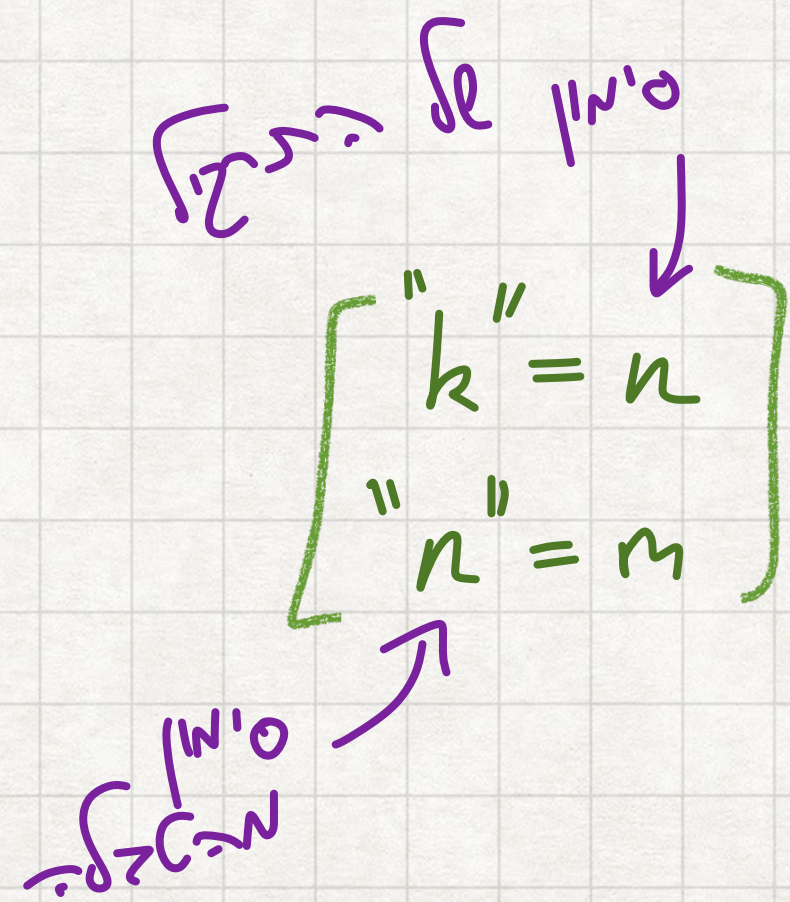 סימון של התרגיל
"k" = n
"n" = m
סימון
מהטבלה